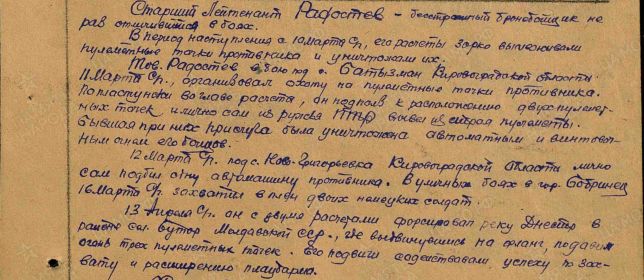 Старший Лейтенант Радостев - бесстрашный бронебойщик не
раз отличившийся в боях.
В период наступления с 10 марта с/г, его расчеты зорко выслеживали
пулеметные точки противника и уничтожали их.
Тов. Радостев в бою под с. Батызман Кировоградской области
11 Марта с/г, организовал охоту на пулеметные точки противника.
По пластунски во главе расчета, он подполз к расположению двух пулемет-
ных точек и лично сам из ружья ПТР вывел из строя пулеметы.
Бывшая при них прислуга была уничтожена автоматным и винтовоч-
ным огнем его бойцов.
12 Марта с/г. под с. Ново-Григорьевка Кировоградской области лично
сам подбил одну автомашину противника. В уличных боях в гор. Бобринец
16 Марта с/г. захватил в плен двоих немецких солдат.
13 Апреля с/г. он с двумя расчетами форсировал реку Днестр в
районе сел. Бутор Молдавской ССР, где выдвинувшись на фланг, подавил
огонь трех пулеметных точек. Его подвиги содействовали успеху по зах-
вату и расширению плацдарма.